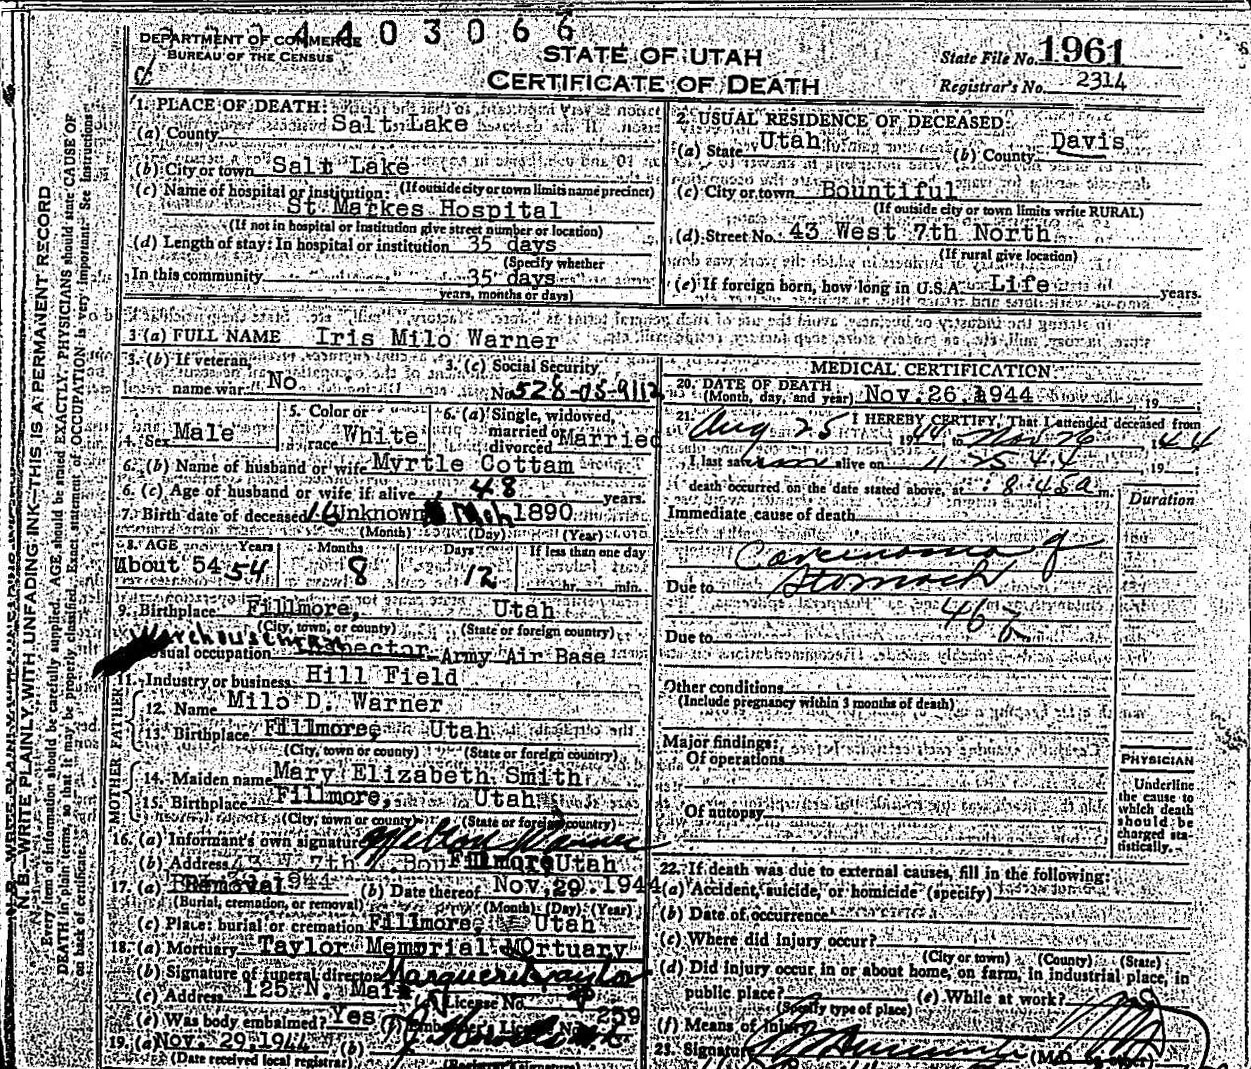 4403066
DEPARTMENT OF COMMERCE
BUREAU OF THE CENSUS
STATE OF UTAH
CERTIFICATE OF DEATH
State File No. 1961
Registrar's No. 2314
N. B.—WRITE PLAINLY, WITH UNFADING INK—THIS IS A PERMANENT RECORD
Every item of information should be carefully supplied. AGE should be stated EXACTLY. PHYSICIANS should state CAUSE OF
DEATH in plain terms, so that it may be properly classified. Exact statement of OCCUPATION is very important. See Instructions
on back of certificate.
1. PLACE OF DEATH:
(a) County Salt Lake
(b) City or town Salt Lake
(If outside city or town limits name precinct)
(c) Name of hospital or institution:
St Markes Hospital
(If not in hospital or Institution give street number or location)
(d) Length of stay: In hospital or institution 35 days
(Specify whether
In this community 35 days
years, months or days)
2. USUAL RESIDENCE OF DECEASED
(a) State Utah (b) County Davis
(c) City or town Bountiful
(If outside city or town limits write RURAL)
(d) Street No. 43 West 7th North
(If rural give location)
(e) If foreign born, how long in U.S.A. Life years.
3 (a) FULL NAME Iris Milo Warner
3. (b) If veteran,
name war No
3. (c) Social Security
No. 528-05-9112
4. Sex Male
5. Color or
race White
6. (a) Single, widowed,
married or
divorced Married
6. (b) Name of husband or wife Myrtle Cottam
6. (c) Age of husband or wife if alive 48 years.
7. Birth date of deceased 16 Unknown Mch 1890
(Month) (Day) (Year)
8. AGE Years Months Days If less than one day
About 54 54 8 12 hr. min.
9. Birthplace Fillmore, Utah
(City, town, or county) (State or foreign country)
Warehouseman
usual occupation Inspector Army Air Base
11. Industry or business Hill Field
FATHER
12. Name Milo D. Warner
13. Birthplace Fillmore, Utah
(City, town or county) (State or foreign country)
MOTHER
14. Maiden name Mary Elizabeth Smith
15. Birthplace Fillmore, Utah
(City, town or county) (State or foreign country)
16. (a) Informant's own signature Warner
(b) Address 43 7th Bou Fillmore Utah
17. (a) Removal 1944 (b) Date thereof Nov. 29. 1944
(Burial, cremation, or removal) (Month) (Day) (Year)
(c) Place: burial or cremation Fillmore, Utah
18. (a) Mortuary Taylor Memorial MOrtuary
(b) Signature of funeral director
(c) Address 125 N. Main License No. 259
(e) Was body embalmed? Yes (f) Embalmer's License No.
19. (a) Nov. 29. 1944 (b)
(Date received local registrar) (Registrar's signature)
MEDICAL CERTIFICATION
20. DATE OF DEATH
(Month, day, and year) Nov. 26. 1944 , 19
21. I HEREBY CERTIFY, That I attended deceased from
Aug 25 1944 to Nov 26 1944
I last saw him alive on 11 25 44 , 19
death occurred on the date stated above, at 8 45a m.
Duration
Immediate cause of death
Carcinoma of
Due to Stomach
46b
Due to
Other conditions
(Include pregnancy within 3 months of death)
Major findings:
Of operations
Of autopsy
PHYSICIAN
Underline
the cause to
which death
should be
charged sta-
tistically.
22. If death was due to external causes, fill in the following:
(a) Accident, suicide, or homicide (specify)
(b) Date of occurrence
(c) Where did injury occur?
(City or town) (County) (State)
(d) Did injury occur in or about home, on farm, in industrial place, in
public place? (e) While at work?
(Specify type of place)
(f) Means of Injury
23. Signature (M.D. or other)